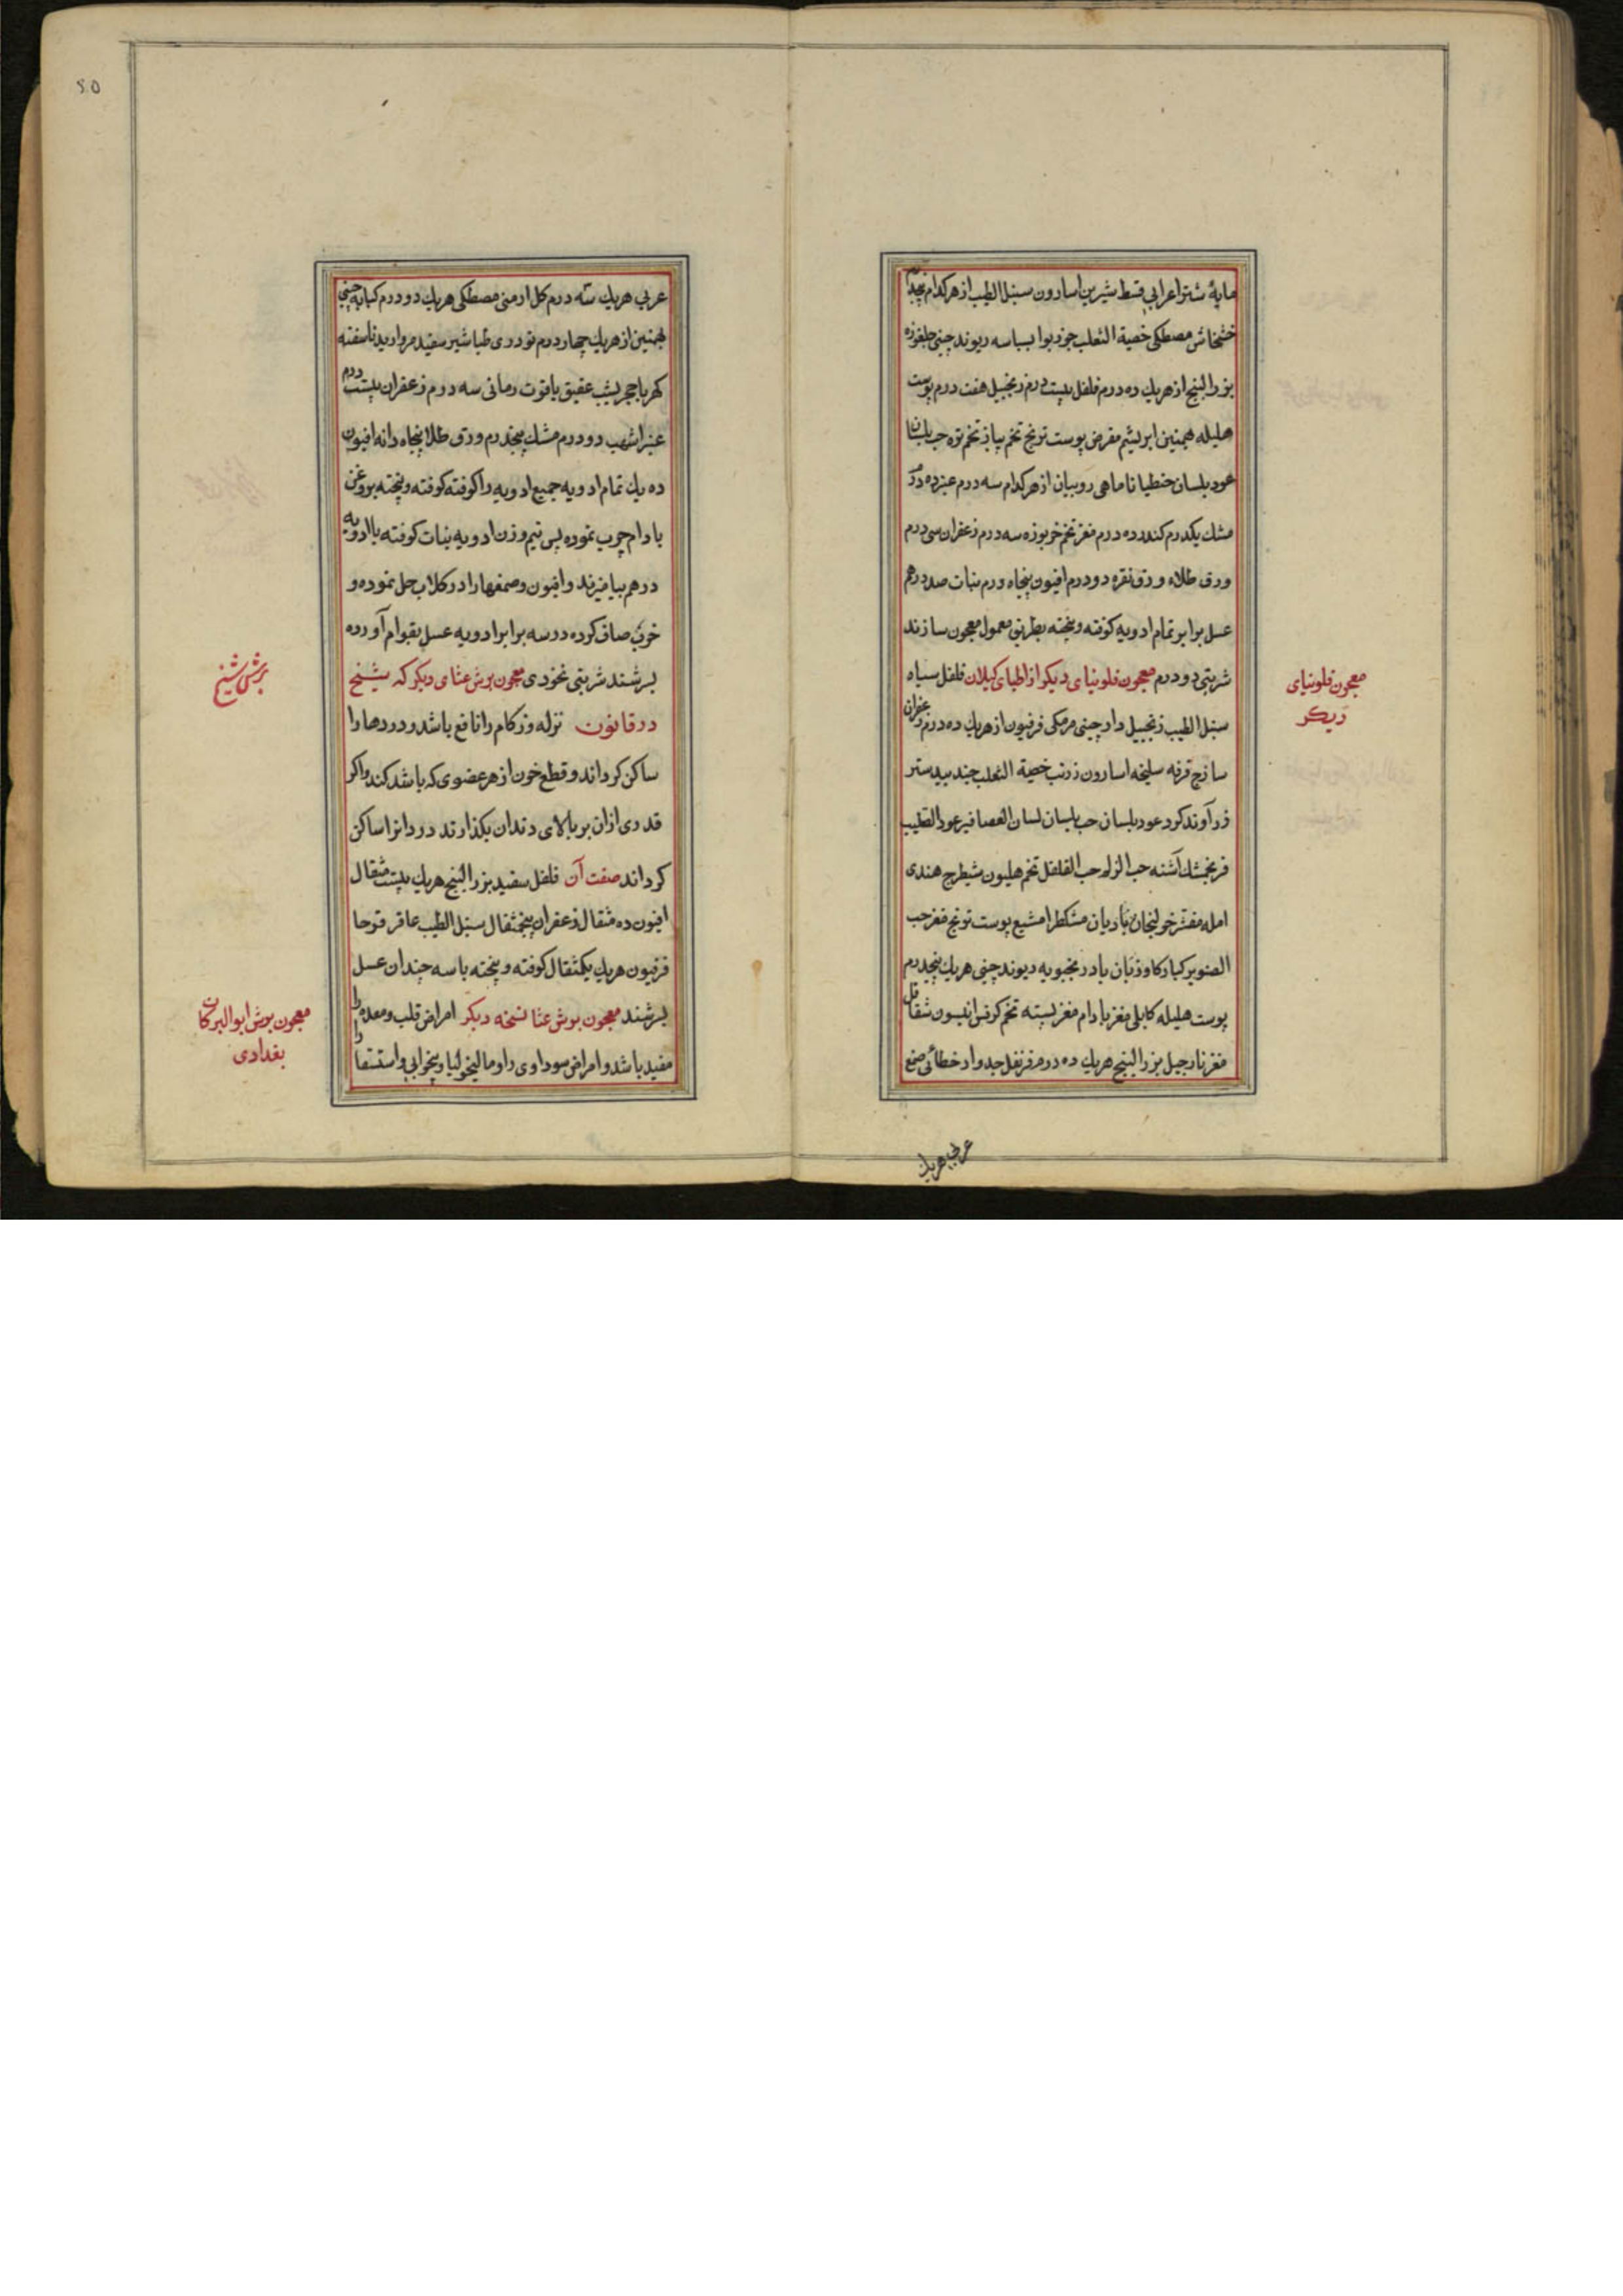 مایهٔ شتر اعرابی قسط شیرین اسارون سنبل الطیب از هر کدام پنجدرم
خشخاش مصطکی خصیة الثعلب جوزبوا بسباسه ریوند چینی جلغوزه
بزر البنج از هریك ده درم فلفل بیست درم زنجبیل هفت درم پوست
هلیله بهمنین ابریشم مقرض پوست ترنج تخم پیاز تخم تره حب بلسان
عود بلسان جنطیانا ماهی روبیان از هر کدام سه درم عنبر ده درم
مشك یکدرم کندر ده درم مغز تخم خربوزه سه درم زعفران سی درم
ورق طلاء ورق نقره دو درم افیون پنجاه درم نبات صد درهم
عسل برابر تمام ادویه کوفته و پخته بطریق معمول معجون سازند
شربتی دو درم معجون فلونیای دیکر از اطبای کیلان فلفل سیاه
سنبل الطیب زنجبیل دارچینی مرمکی فرفیون از هریك ده درم زعفران
سازج قرفه سلیخه اسارون زرنب خصیة الثعلب جندبیدستر
زرآوند کرد عود بلسان حب بلسان لسان العصافیر عود الصلیب
فرنجمشك آشنه حب الزلم حب القلقل تخم هلیون شیطرج هندی
امله مقشر خولنجان بادیان مشکطرامشیع پوست ترنج مغز حب
الصنوبر کبار کاوزبان بادرنجبویه ریوند چینی هریك پنجدرم
پوست هلیله کابلی مغز بادام مغز پسته تخم کرفس انیسون شقاقل
مغز نارجیل بزر البنج هریك ده درم قرنفل جدوار خطائی صمغ
معجون فلونیای
دیکر
عربی هریك
٤٥
عربی هریك سه درم کل ارمنی مصطکی هریك دو درم کبابه چینی
بهمنین از هریك چهار درم تودری طباشیر سفید مروارید ناسفته
کهربا حجر یشب عقیق یاقوت رمانی سه درم زعفران بیست درم
عنبر اشهب دو درم مشك پنجدرم ورق طلا پنجاه دانه افیون
ده یك تمام ادویه جمیع ادویه را کوفته کوفته و پخته بروغن
بادام چرب نموده پس نیم وزن ادویه نبات کوفته با ادویه
در هم بیامیزند و افیون و صمغها را در کلاب حل نموده و
خوب صاف کرده در سه برابر ادویه عسل بقوام آورده
بسرشند شربتی نخودی معجون برش عثای دیکر که شیخ
در قانون نزله و زکام را نافع باشد و دردها را
ساکن کرداند و قطع خون از هر عضوی که باشد کند و اکر
قدری ازان بر بالای دندان بکذارند درد انرا ساکن
کرداند صفت آن فلفل سفید بزر البنج هریك بیست مثقال
افیون ده مثقال زعفران پنجمثقال سنبل الطیب عاقرقرحا
فرفیون هریك یکمثقال کوفته و پخته با سه چندان عسل
بسرشند معجون برش عثا نسخه دیکر امراض قلب و معده را
مفید باشد و امراض سوداوی را و مالیخولیا و بیخوابی و استسقا را
برش شیخ
معجون برش ابو البرکات
بغدادی